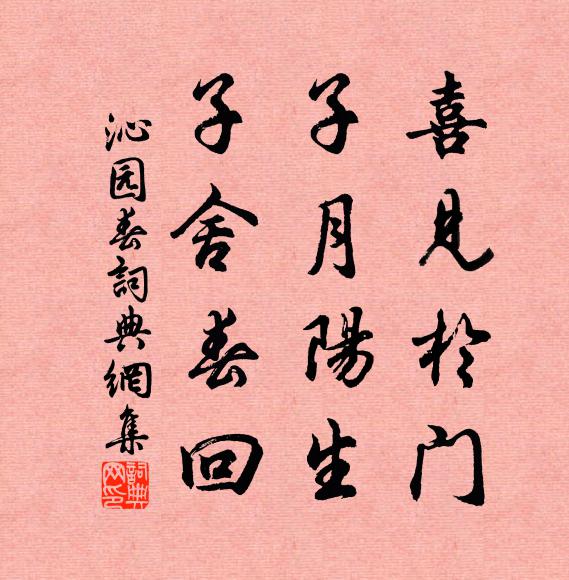 喜見於门
子月陽生
子舍春回
沁园春詞典網集
詞典网印